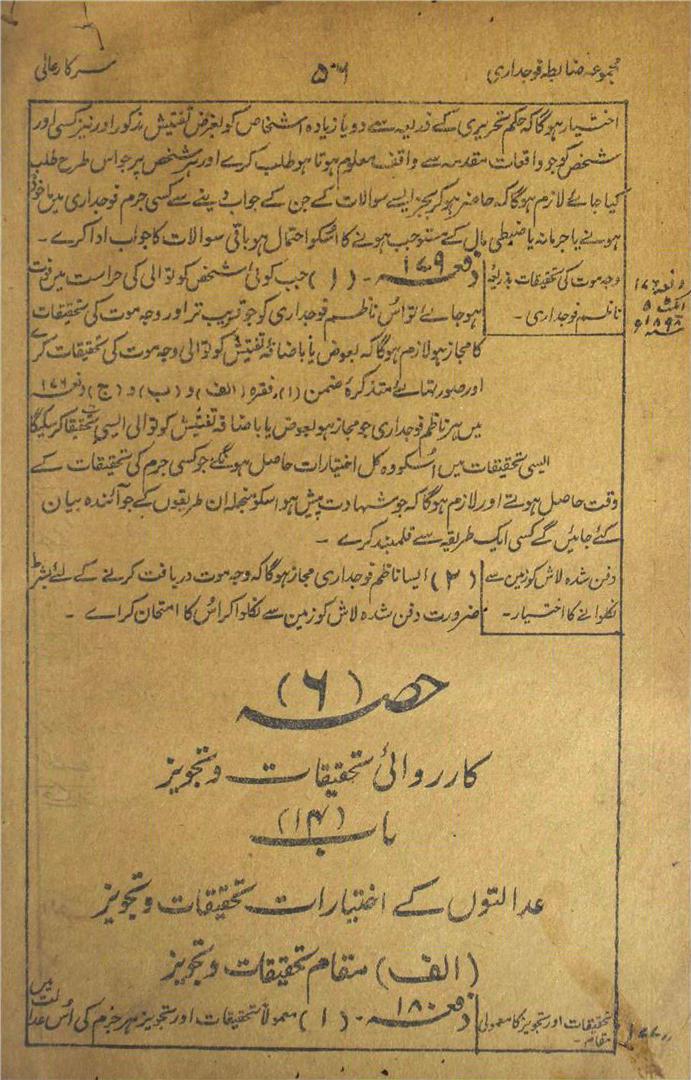 مجموعہ ضابطہ فوجداری
۵۰۶
سرکار عالی
اختیار ہوگا کہ حکم تحریری کے ذریعہ سے دو یا زیادہ اشخاص کو بغرض تفتیش مذکور اور نیز کسی اور
شخص کو جو واقعات مقدمہ سے واقف معلوم ہوتا ہو طلب کرے اور ہر شخص پر جو اس طرح طلب
کیا جائے لازم ہوگا کہ حاضر ہو کر بجز ایسے سوالات کے جن کے جواب دینے سے کسی جرم فوجداری میں ماخوذ
ہونے یا جرمانہ یا ضبطی مال کے مستوجب ہونے کا اسکو احتمال ہو باقی سوالات کا جواب ادا کرے ۔
وجہ موت کی تحقیقات بذریعہ
ناظم فوجداری ۔
دفعہ ۱۷۶
ایکٹ ۵
۱۸۹۸ء
دفعہ ۱۷۹ ۔ (۱) جب کوئی شخص کوتوالی کی حراست میں فوت
ہوجائے تو اس ناظم فوجداری کو جو قریب تر اور وجہ موت کی تحقیقات
کا مجاز ہو لازم ہوگا کہ بعوض یا باضافۂ تفتیش کوتوالی وجہ موت کی تحقیقات کرے
اور صورتہائے متذکرۂ ضمن (۱) فقرہ (الف) و (ب) و (ج) دفعہ ۱۷۶
میں ہر ناظم فوجداری جو مجاز ہو بعوض یا باضافۂ تفتیش کوتوالی ایسی تحقیقات کرسکیگا
ایسی تحقیقات میں اسکو وہ کل اختیارات حاصل ہونگے جو کسی جرم کی تحقیقات کے
وقت حاصل ہوتے اور لازم ہوگا کہ جو شہادت پیش ہو اسکو منجملہ ان طریقوں کے جو آئندہ بیان
کئے جائیں گے کسی ایک طریقہ سے قلمبند کرے ۔
دفن شدہ لاش کو زمین سے
نکلوانے کا اختیار ۔
(۲) ایسا ناظم فوجداری مجاز ہوگا کہ وجہ موت دریافت کرنے کے لئے بشرط
ضرورت دفن شدہ لاش کو زمین سے نکلوا کر اس کا امتحان کرائے ۔
حصہ (۶)
کارروائی تحقیقات و تجویز
باب (۱۴)
عدالتوں کے اختیارات تحقیقات و تجویز
(الف) مقام تحقیقات و تجویز
تحقیقات اور تجویز کا معمولی
مقام ۔
دفعہ ۱۸۰ ۔ (۱) معمولاً تحقیقات اور تجویز ہر جرم کی اُس عدالت میں